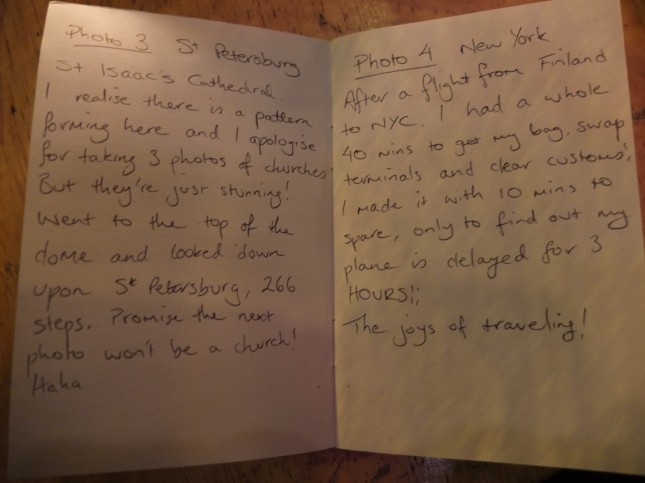 Photo 3 St Petersburg
St Isaac's Cathedral
I realise there is a pattern
forming here and I apologise
for taking 3 photos of churches
But they're just stunning!
Went to the top of the
dome and looked down
upon St Petersburg, 266
steps. Promise the next
photo won't be a church!
Haha
Photo 4 New York
After a flight from Finland
to NYC. I had a whole
40 mins to get my bag, swap
terminals and clear customs!
I made it with 10 mins to
spare, only to find out my
plane is delayed for 3
HOURS!!
The joys of traveling!